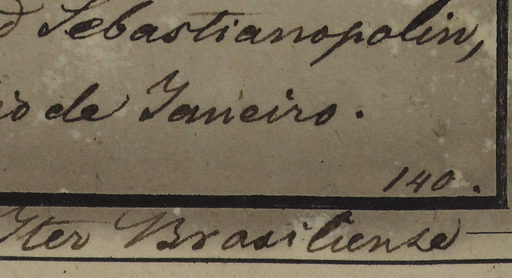 d Sebastianopolin,
io de Janeiro.
140.
Iter Brasiliense